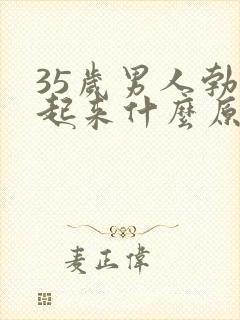 35歲男人勃
起来什麼原
麦正偉